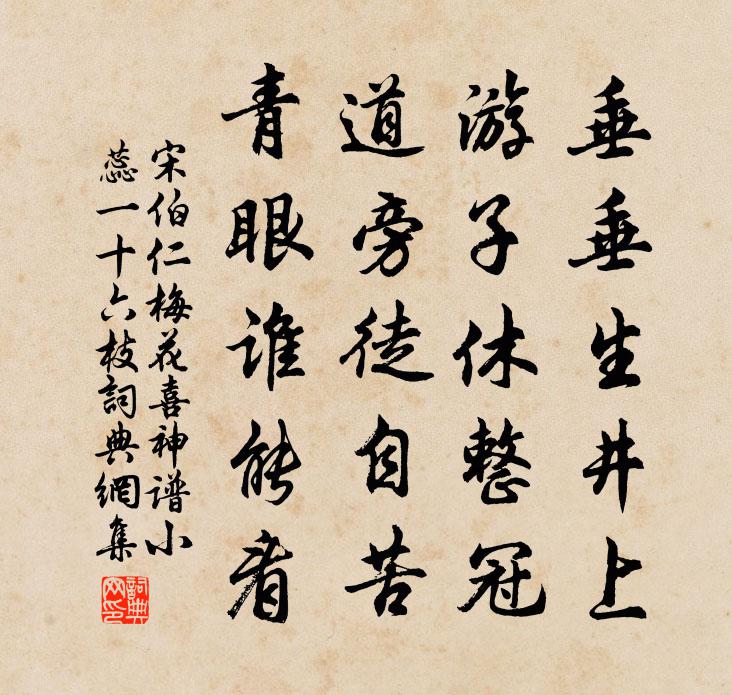 垂垂生井上
游子休整冠
道旁徒自苦
青眼谁能看
宋伯仁梅花喜神谱小
蕊一十六枝詞典網集
詞典網印